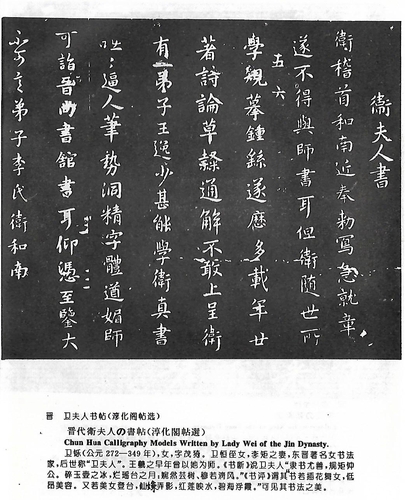 衛夫人書
衛稽首和南近奉勅寫急就章
遂不得與師書耳但衛隨世所
五六
學規摹鍾繇遂歷多載年廿
著詩論草隸通解不敢上呈衛
有一弟子王逸少甚能學衛真書
咄〻逼人筆勢洞精字體遒媚師
可詣晉尚書館書耳仰憑至鑒大
不可言弟子李氏衛和南
晋 卫夫人书帖(淳化阁帖选)
晋代衛夫人の書帖(淳化閣帖選)
Chun Hua Calligraphy Models Written by Lady Wei of the Jin Dynasty.
卫铄(公元272—349年),女,字茂猗。卫恒侄女,李矩之妻,东晋著名女书法
家,后世称“卫夫人”。王羲之早年曾以她为师。《书断》说卫夫人“隶书尤善,规矩钟
公。碎玉壶之冰,烂瑶台之月,婉然芳树,穆若清风。”《书评》谓其“书若插花舞女,低
昂美容。又若美女登台,仙娥弄影,红莲映水,碧海浮霞。”可见其书法之美。